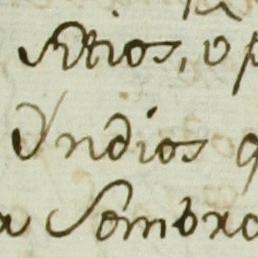 sitios, o p
Yndios q
a Sombra